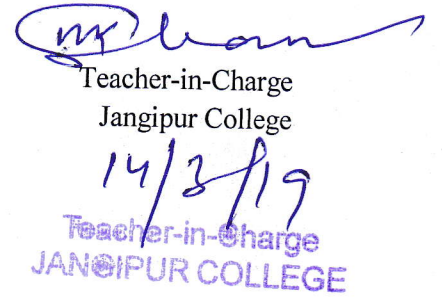 Teacher-in-Charge
Jangipur College
14/3/19
Teacher-in-Charge
JANGIPUR COLLEGE